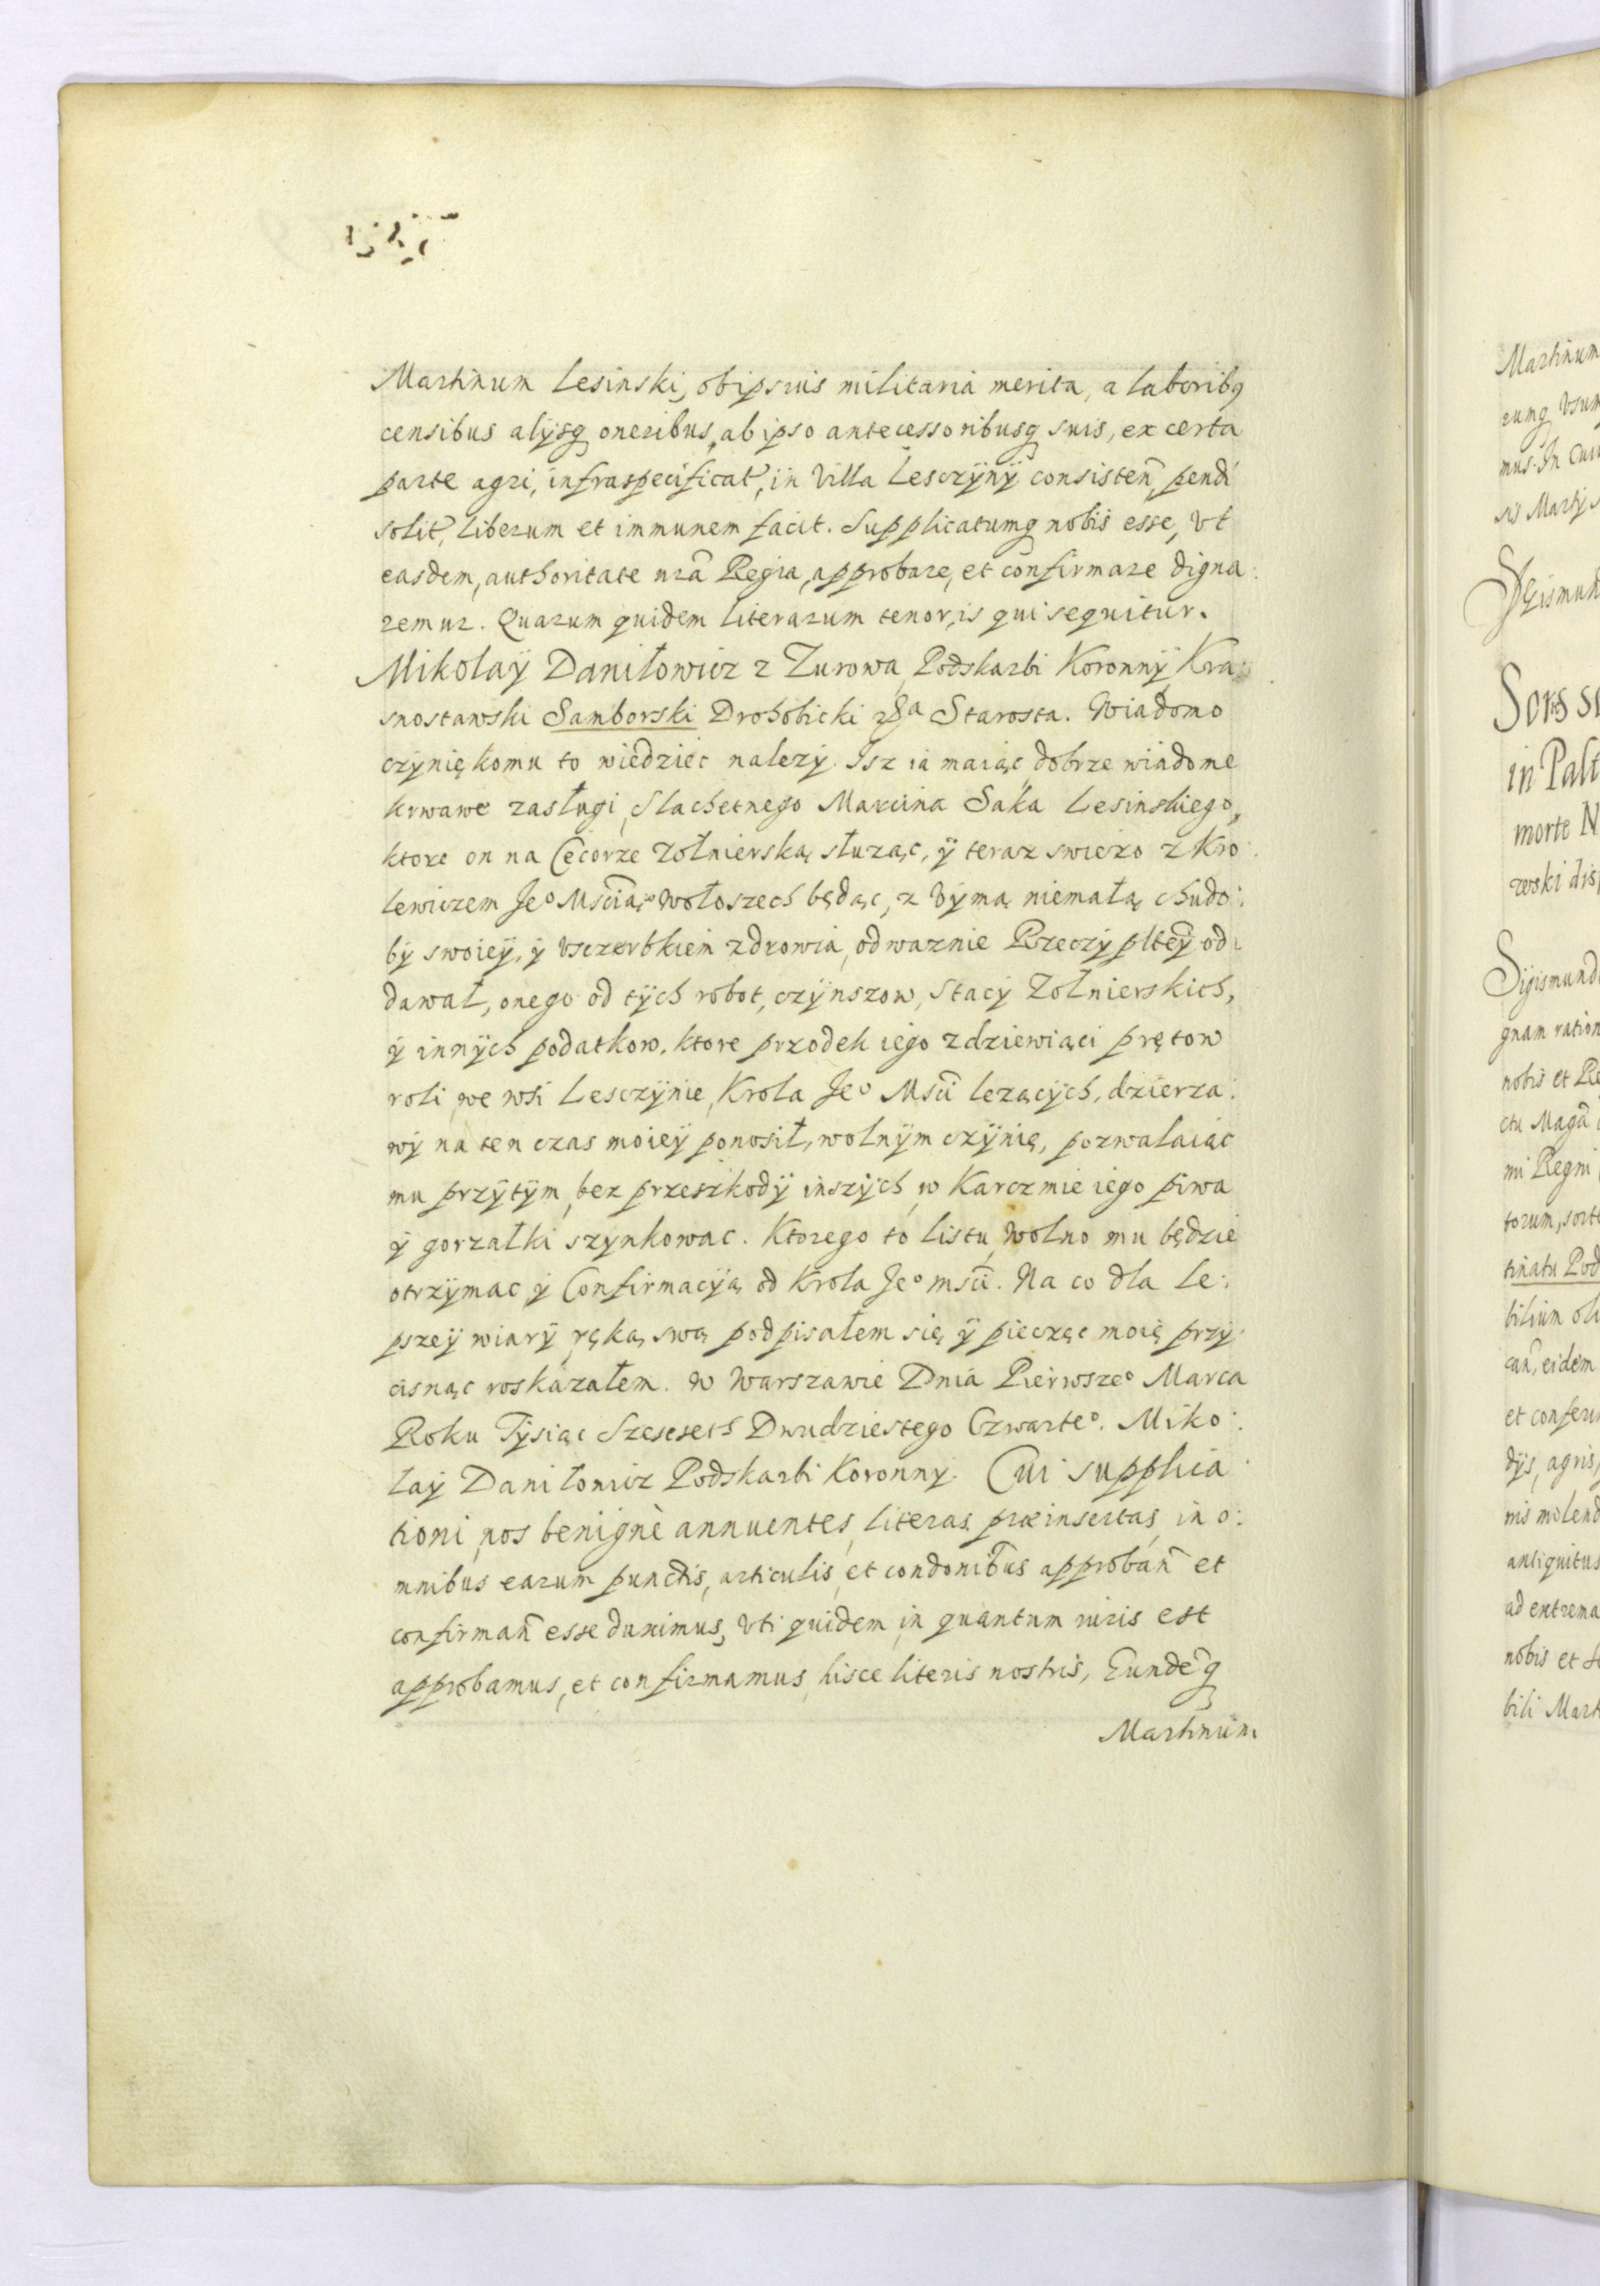 Martinum Lesinski, ob ipsius militaria merita, a laboribꝫ
censibus alijsq oneribus, ab ipso antecessoribusq suis, ex certa
parte agri, infraspecificat, in Villa Lesczÿnÿ consisten̄, pendi
solit, liberum et immunem facit. Supplicatumq nobis esse, vt
easdem, authoritate nr̄a Regia, approbare, et confirmare digna:
remur. Quarum quidem literarum tenor, is qui sequitur.
Mikołaÿ Daniłowicz z Zurowa, Podskarbi Koronnÿ Kra:
snostawski Samborski Drohobicki &ᵃ Starosta. Wiadomo
czÿnię komu to wiedziec nalezÿ. Isz ia maiąc dobrze wiadome
krwawe zasługi, Slachetnego Marcina Saka Lesinskiego,
ktore on na Cecorze Zołnierską słuząc, ÿ teraz swiezo z Kro:
lewiczem Jeº Mścią, w Wołoszech będąc, z vÿmą niemałą chudo:
bÿ swoieÿ, ÿ vsczerbkiem zdrowia, odwaznie Rzeczÿ pltēÿ od:
dawał, onego od tÿch robot, czÿnszow, Stacÿ Zołnierskich,
ÿ innÿch podatkow, ktore przodek iego z dziewiąci prętow
roli, we wsi Lesczÿnie, Krola Jeº Mści lezącÿch, dzierza:
wÿ na ten czas moieÿ ponosił, wolnÿm czÿnię, pozwalaiąc
mu przÿtÿm, bez przeszkodÿ inszÿch, w Karczmie iego piwa
ÿ gorzałki szÿnkowac. Ktorego to listu, wolno mu będzie
otrzÿmac ÿ Confirmacÿą od Krola Jeº mści. Na co dla le:
pszeÿ wiarÿ, ręką swą podpisałem się ÿ pieczęc moię przÿ:
cisnąc roskazałem. W Warszawie Dnia Pierwszeº Marca
Roku Tÿsiąc Szescseth Dwudziestego Czwarteº. Miko:
łaÿ Daniłowicz Podskarbi Koronnÿ. Cui supplica:
tioni, nos benignè annuentes, literas præinsertas, in o:
mnibus earum punctis, articulis, et condonibus approban̄ et
confirman̄ esse duximus, vti quidem in quantum iuris est
approbamus, et confirmamus, hisce literis nostris, Eundēq
Martinum